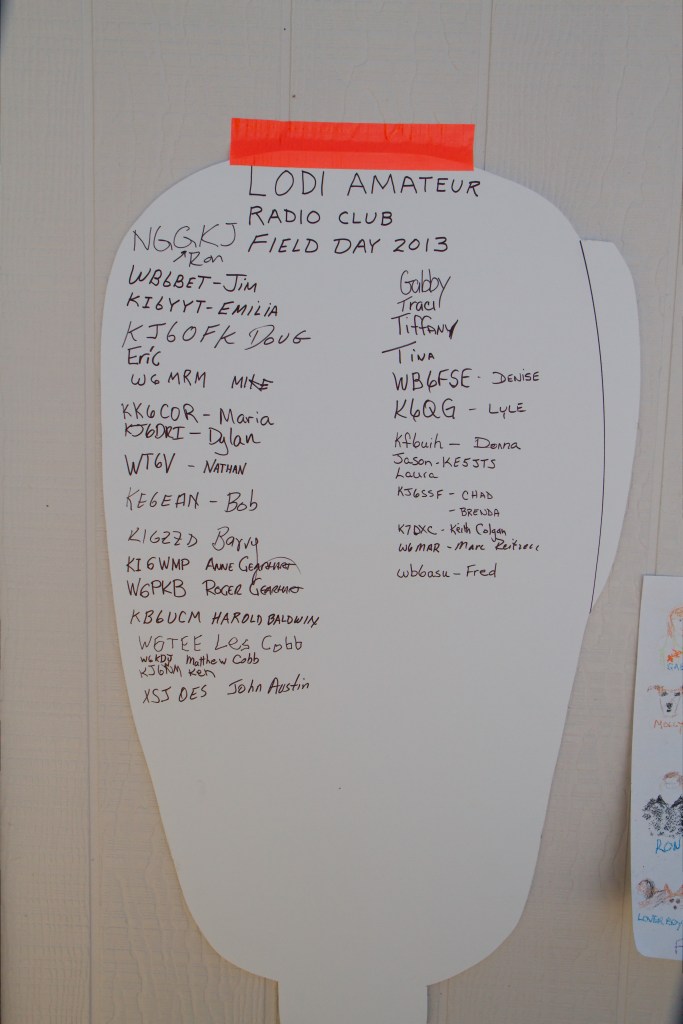 LODI AMATEUR
RADIO CLUB
FIELD DAY 2013
NG6KJ
Ron
WB6BET - Jim
KI6YYT - EMILIA
KJ6OFK DOUG
Eric
W6MRM MIKE
KK6COR - Maria
KJ6DRI - Dylan
WT6V - NATHAN
KE6EAN - Bob
KI6ZZD Barry
KI6WMP ANNE GEARHART
W6PKB ROGER GEARHART
KB6UCM HAROLD BALDWIN
W6TEE Les Cobb
W6KDJ Matthew Cobb
Ken
XSJ OES John Austin
Gabby
Traci
Tiffany
Tina
WB6FSE - DENISE
K6QG - LYLE
Kf6uih - Donna
Jason - KE5JTS
Laura
KJ6SSF - CHAD
- BRENDA
K7DXC - Keith Colgan
W6MAR - Marc
wb6asu - Fred
MOLLY
RON